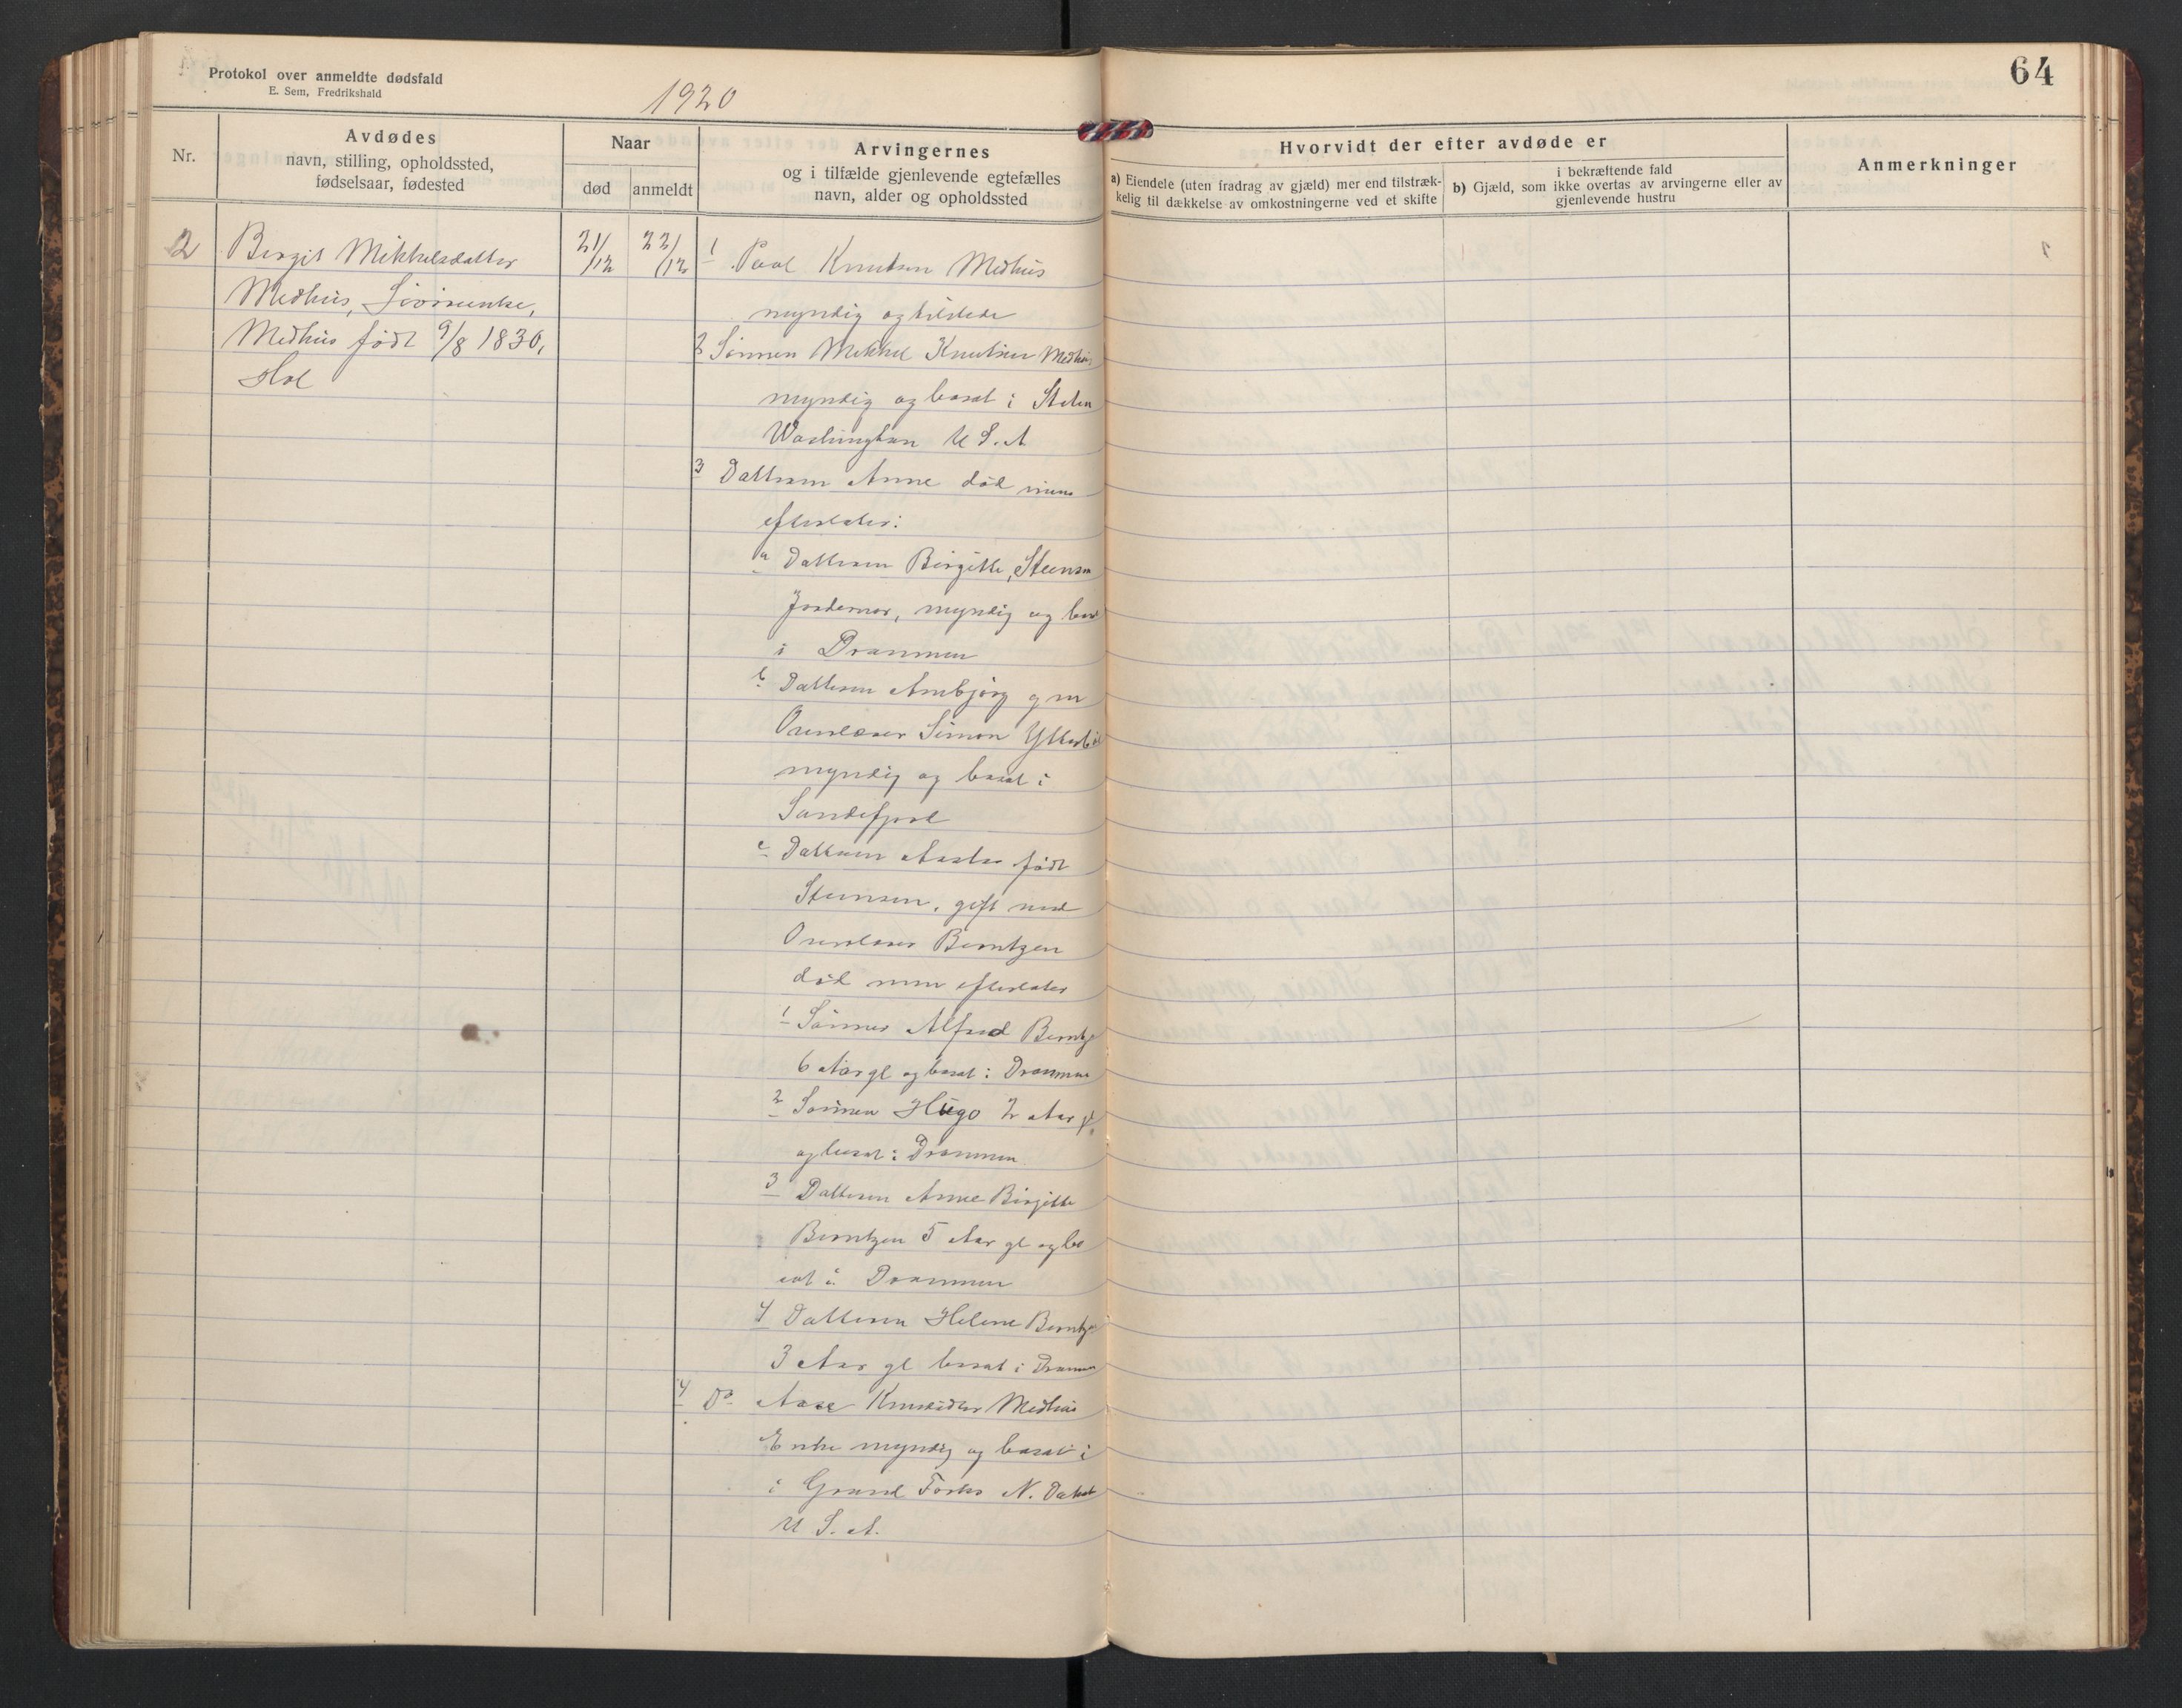 64
Protokol over anmeldte dødsfald
E. Sem, Fredrikshald
1920
Nr.
Avdødes
navn, stilling, opholdssted,
fødselsaar, fødested
Naar
død
anmeldt
Arvingernes
og i tilfælde gjenlevende egtefælles
navn, alder og opholdssted
Hvorvidt der efter avdøde er
a) Eiendele (uten fradrag av gjæld) mer end tilstræk-
kelig til dækkelse av omkostningerne ved et skifte
i bekræftende fald
b) Gjæld, som ikke overtas av arvingerne eller av
gjenlevende hustru
Anmerkninger
2
Birgit Mikkelsdatter
Medhus,
Medhus født 9/8 1830,
Hol
21/12
22/12
1 Paal Knutsen Medhus
myndig og tilstede
2 Sønnen Mikkel Knutsen Medhus
myndig og bosat i Staten
Washington U S. A
3 Datteren Anne død men
efterlater:
a Datteren Birgitte, Steensen
Jordemor, myndig og bosat
i Drammen
b Datteren Ambjørg g m
Simon
myndig og bosat i
Sandefjord
c Datteren Aasta født
Steensen, gift med
Berntzen
død men efterlater
1 Sønnen Alfred Berntz
6 Aar gl og bosat i Drammen
2 Sønnen Hugo 2 Aar gl.
og bosat i Drammen
3 Datteren Anne Birgitte
Berntzen 5 Aar gl og bo
sat i Drammen
4 Datteren Helene Berntz
3 Aar gl bosat i Drammen
4 Do Aase Knutsdtr Medhus
Enke myndig og bosat i
i Grand Forks N. Dakota
U S. A.